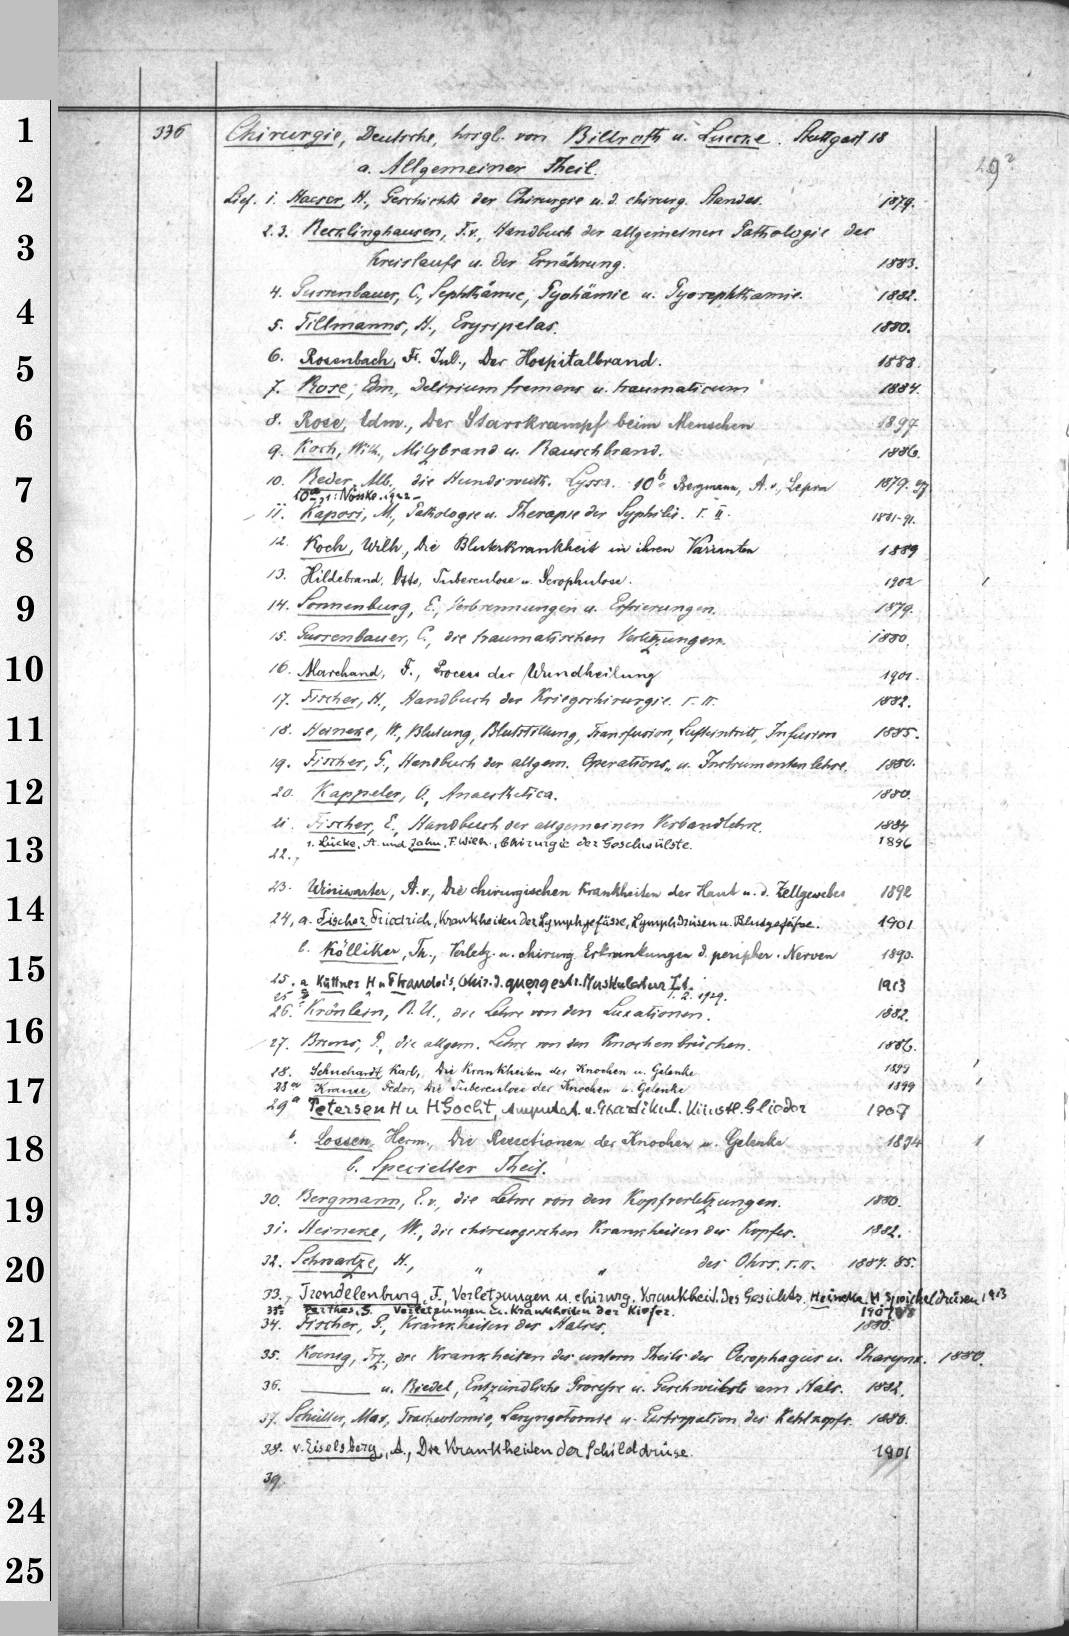 1
2
3
4
5
6
7
8
9
10
11
12
13
14
15
16
17
18
19
20
21
22
23
24
25
336 Chirurgie, Deutsche, hrsgl. von Billroth u. Luecke. Stuttgart 18
a. Allgemeiner Theil. 29?
Lief. 1. Haeser, H., Geschichte der Chirurgie u. d. chirurg. Standes. 1879.
2.3. Recklinghausen, F.v., Handbuch der allgemeinen Pathologie des
Kreislaufs u. der Ernährung. 1883.
4. Gussenbauer, C., Sephthämie, Pyohämie u. Pyosephthämie. 1882.
5. Tillmanns, H., Erysipelas. 1880.
6. Rosenbach, Fr. Jul., Der Hospitalbrand. 1888.
7. Rose, Edm., Delirium tremens u. traumaticum 1884.
8. Rose, Edm., Der Starrkrampf beim Menschen 1897
9. Koch, Wilh., Milzbrand u. Rauschbrand. 1886.
10. Reder, Alb., die Hundswuth. Lyssa. 10b. Bergmann, A. v., Lepra 1879. 97
10a, 1: Nöske. 1922
11. Kaposi, M., Pathologie u. Therapie der Syphilis. I. II. 1881-91.
12. Koch, Wilh., Die Bluterkrankheit in ihren Varianten 1889
13. Hildebrand, Otto, Tuberculose u. Scrophulose. 1902 1
14. Sonnenburg, E., Verbrennungen u. Erfrierungen. 1879.
15. Gussenbauer, C., die traumatischen Verletzungen. 1880.
16. Marchand, F., Process der Wundheilung 1901.
17. Fischer, H., Handbuch der Kriegschirurgie. I. II. 1882.
18. Heineke, W., Blutung, Blutstillung, Transfusion, Lufteintritt, Infusion 1885.
19. Fischer, G., Handbuch der allgem. Operations- u. Instrumentenlehre. 1880.
20. Kappeler, O., Anaesthetica. 1880.
21. Fischer, E., Handbuch der allgemeinen Verbandlehre. 1884
22. 1. Lücke, A. und Zahn, F. Wilh., Chirurgie der Geschwülste. 1896
23. Winiwarter, A. v., Die chirurgischen Krankheiten der Haut u. d. Zellgewebes 1892
24, a. Fischer Friedrich, Krankheiten der Lymphgefässe, Lymphdrüsen u. Blutgefässe. 1901
b. Kölliker, Th., Verletz. u. chirurg. Erkrankungen d. peripher. Nerven 1890.
25. a Küttner H u Landois, Chir. d. quergestr. Muskulatur I. t. 1913
25 1. 2. 1929.
26. Krönlein, R. U., die Lehre von den Luxationen. 1882.
27. Bruns, P., die allgem. Lehre von den Knochenbrüchen. 1886.
28. Schuchardt Karl, Die Krankheiten der Knochen u. Gelenke 1899 1
28a Krause, Fedor, Die Tuberculose der Knochen u. Gelenke 1899 1
29a Petersen H u H Gocht, Amputat. u. Exartikul. Künstl. Glieder 1907
b. Lossen, Herm., Die Resectionen der Knochen u. Gelenke 1894 1
b. Specieller Theil.
30. Bergmann, E. v., die Lehre von den Kopfverletzungen. 1880.
31. Heineke, W., die chirurgischen Krankheiten des Kopfes. 1882.
32. Schwartze, H., „ „ des Ohrs. I. II. 1884. 85.
33. Trendelenburg, F., Verletzungen u. chirurg. Krankheit. des Gesichts. Heineke H Speicheldrüsen 1913
33a Perthes, G. Verletzungen u. Krankheiten der Kiefer. 1907
34. Fischer, G., Krankheiten des Halses. 1880.
35. Koenig, Fz., die Krankheiten des untern Theils des Oesophagus u. Pharynx. 1880.
36. ——— u. Riedel, Entzündliche Processe u. Geschwülste am Hals. 1882.
37. Schüller, Max, Tracheotomie, Laryngotomie u. Exstirpation des Kehlkopfs. 1880.
38. v. Eiselsberg, A., Die Krankheiten der Schilddrüse. 1901
39.